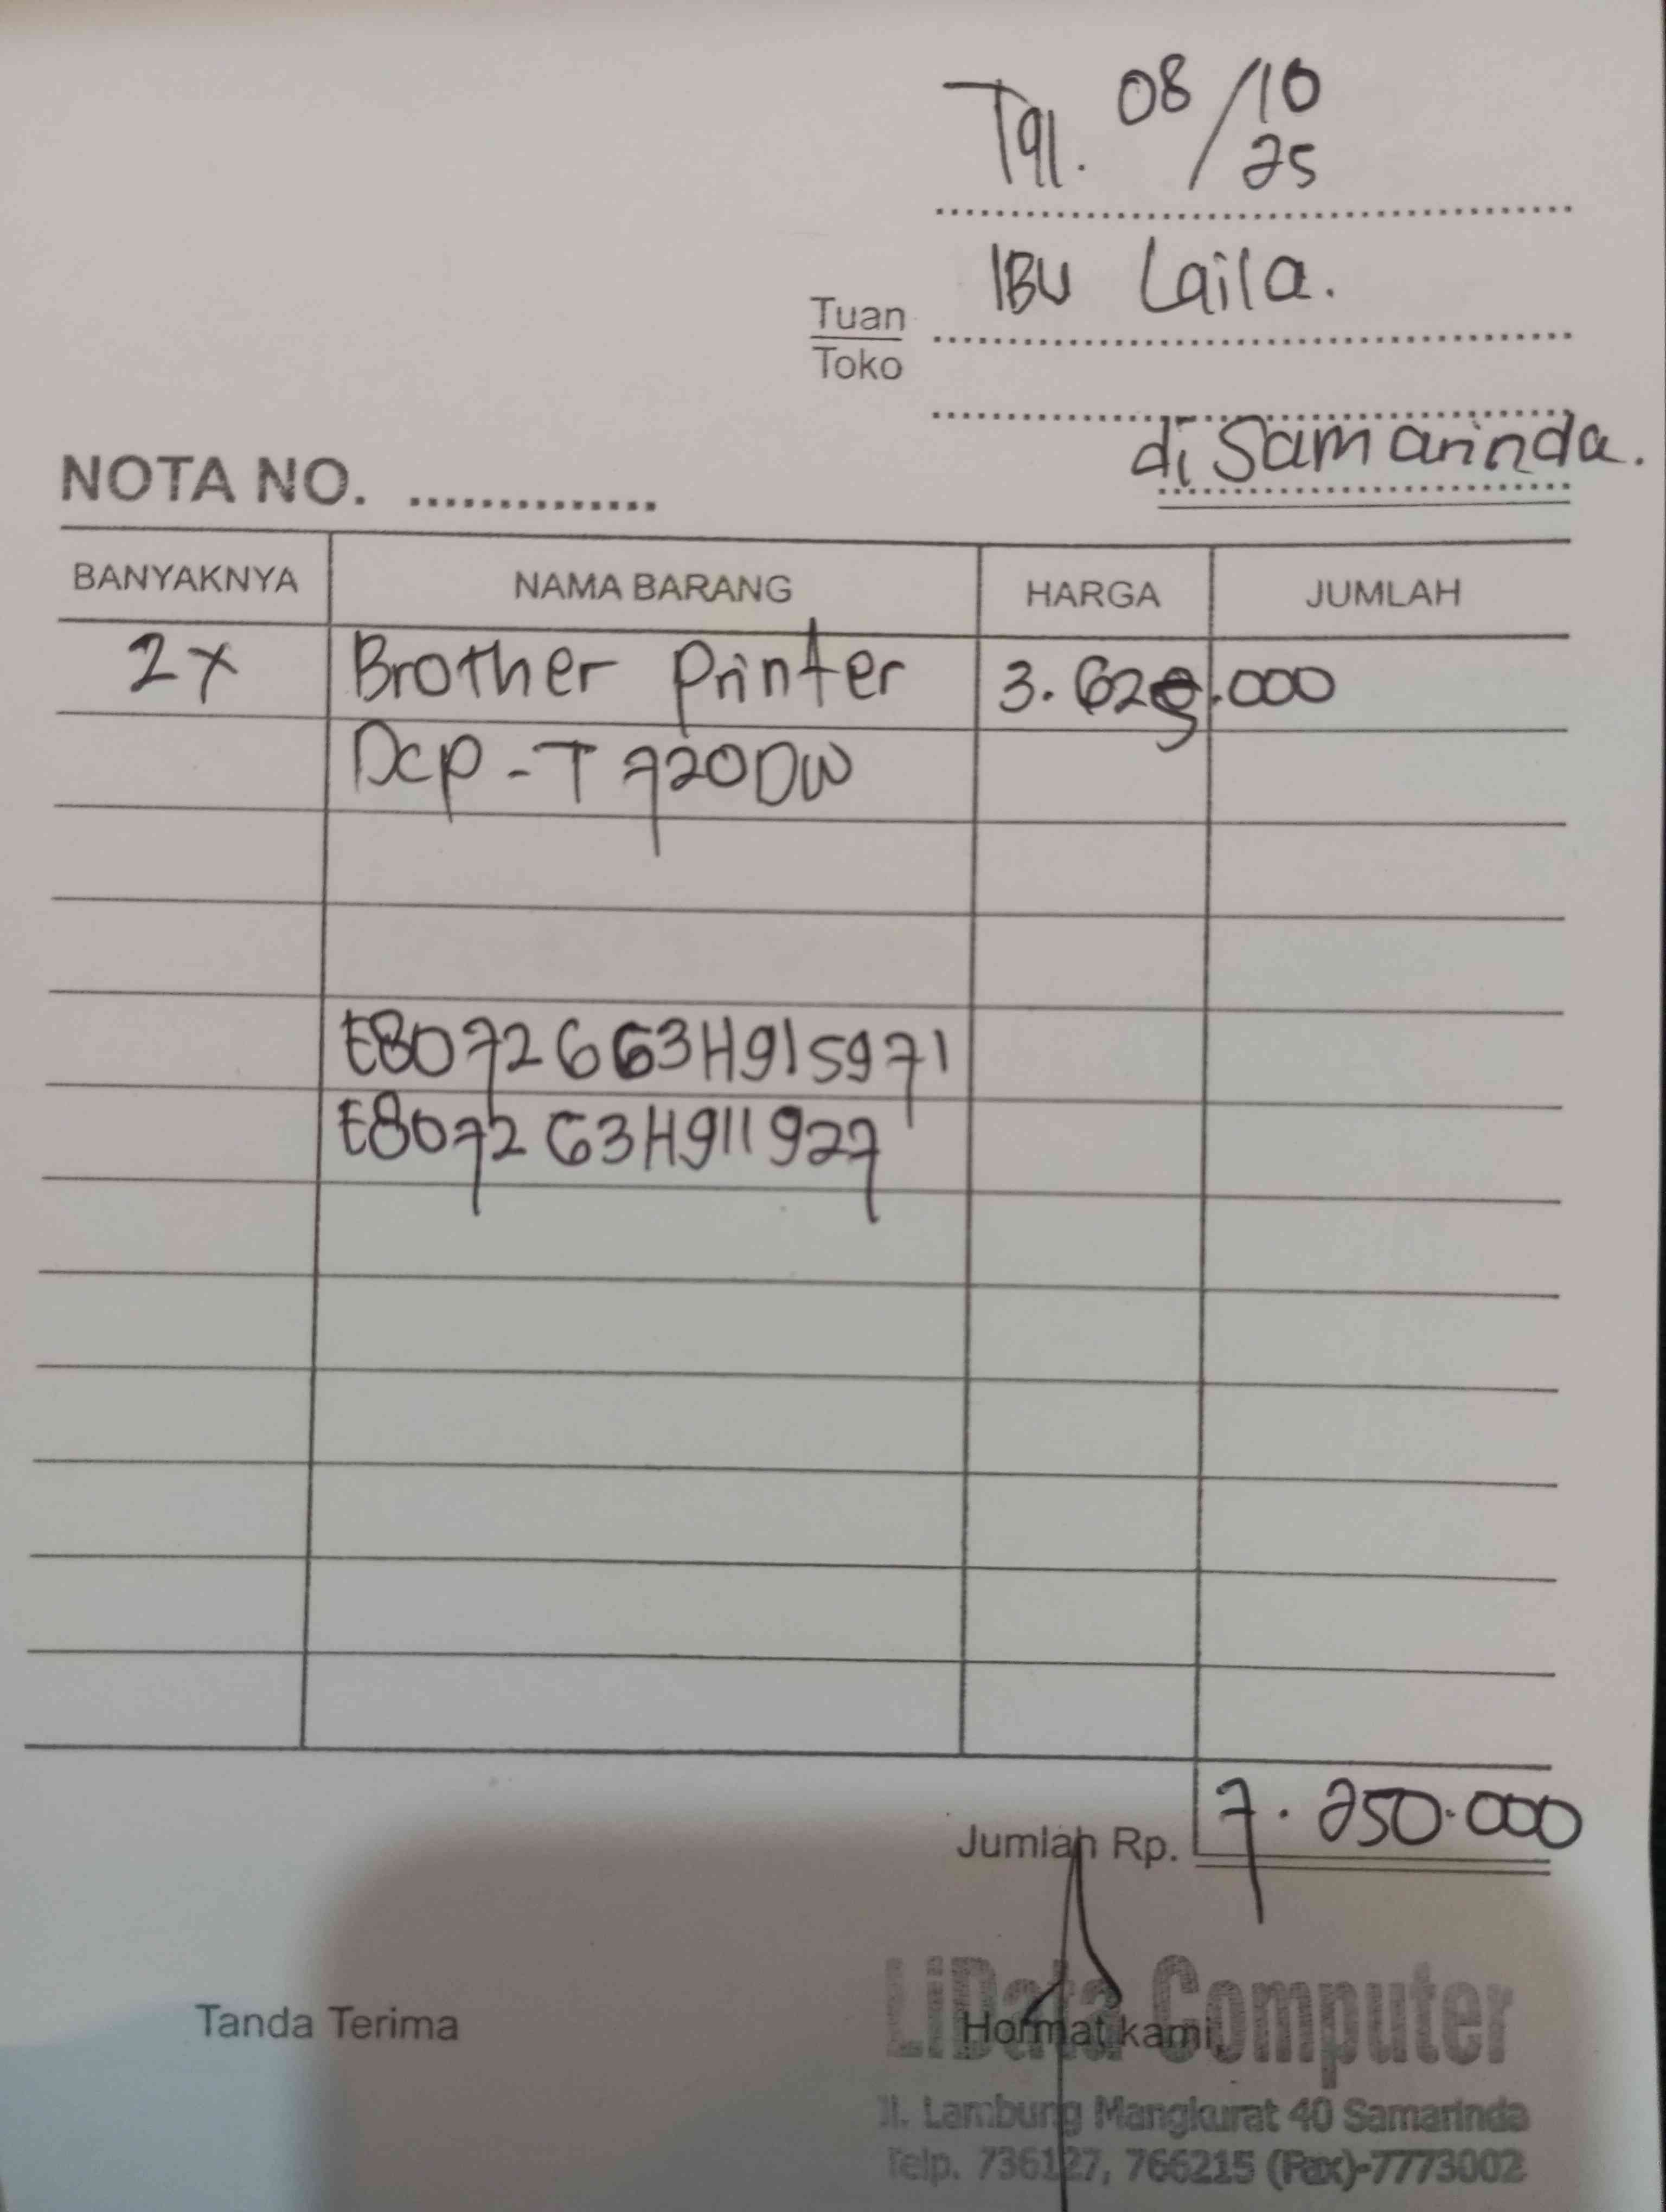 Tgl. 08/10
25
IBU Laila.
Tuan
Toko
di Samarinda.
NOTA NO. ..............
BANYAKNYA NAMA BARANG HARGA JUMLAH
2x Brother Printer 3.625.000
Dcp - T 720DW
E80726663H915971
E807263H911927
Jumlah Rp. 7.250.000
Tanda Terima Hormat kami,
LiData Computer
Jl. Lambung Mangkurat 40 Samarinda
Telp. 736127, 766215 (Fax)-7773002